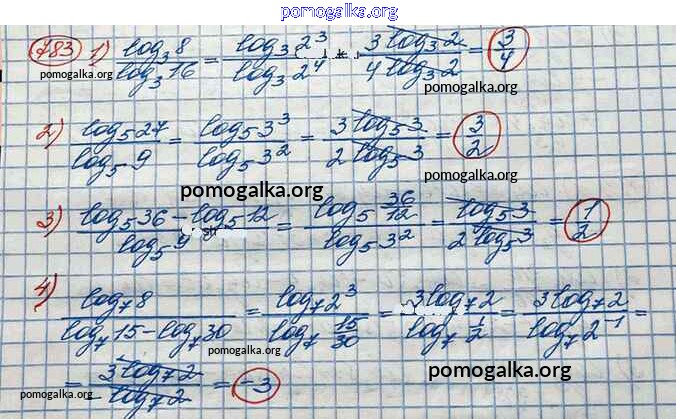 pomogalka.org
783 1) log₃8 / log₃16 = log₃2³ / log₃2⁴ = 3log₃2 / 4log₃2 = 3/4
pomogalka.org
pomogalka.org
pomogalka.org
2) log₅27 / log₅9 = log₅3³ / log₅3² = 3log₅3 / 2log₅3 = 3/2
pomogalka.org
pomogalka.org
3) log₅36 - log₅12 / log₅9 = log₅ 36/12 / log₅3² = log₅3 / 2log₅3 = 1/2
4) log₇8 / log₇15 - log₇30 = log₇2³ / log₇ 15/30 = 3log₇2 / log₇ 1/2 = 3log₇2 / log₇2⁻¹ =
pomogalka.org
= 3log₇2 / -log₇2 = -3
pomogalka.org
pomogalka.org
pomogalka.org